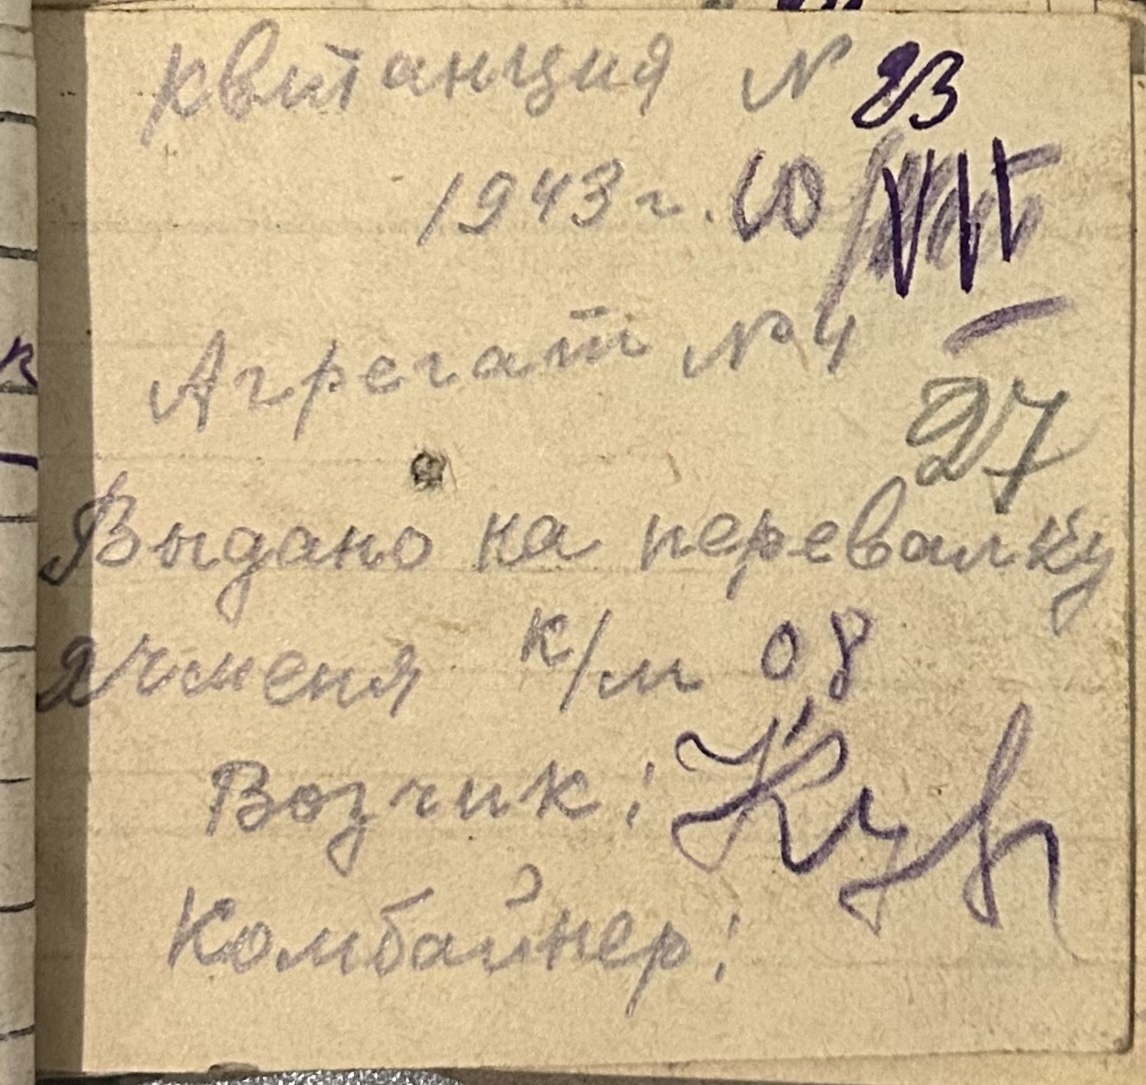 Квитанция N 23
1943 г. 10/VII
Агрегат № 4
27
Выдано на перевалку
ячменя к/м 08
Возчик:
Комбайнер: